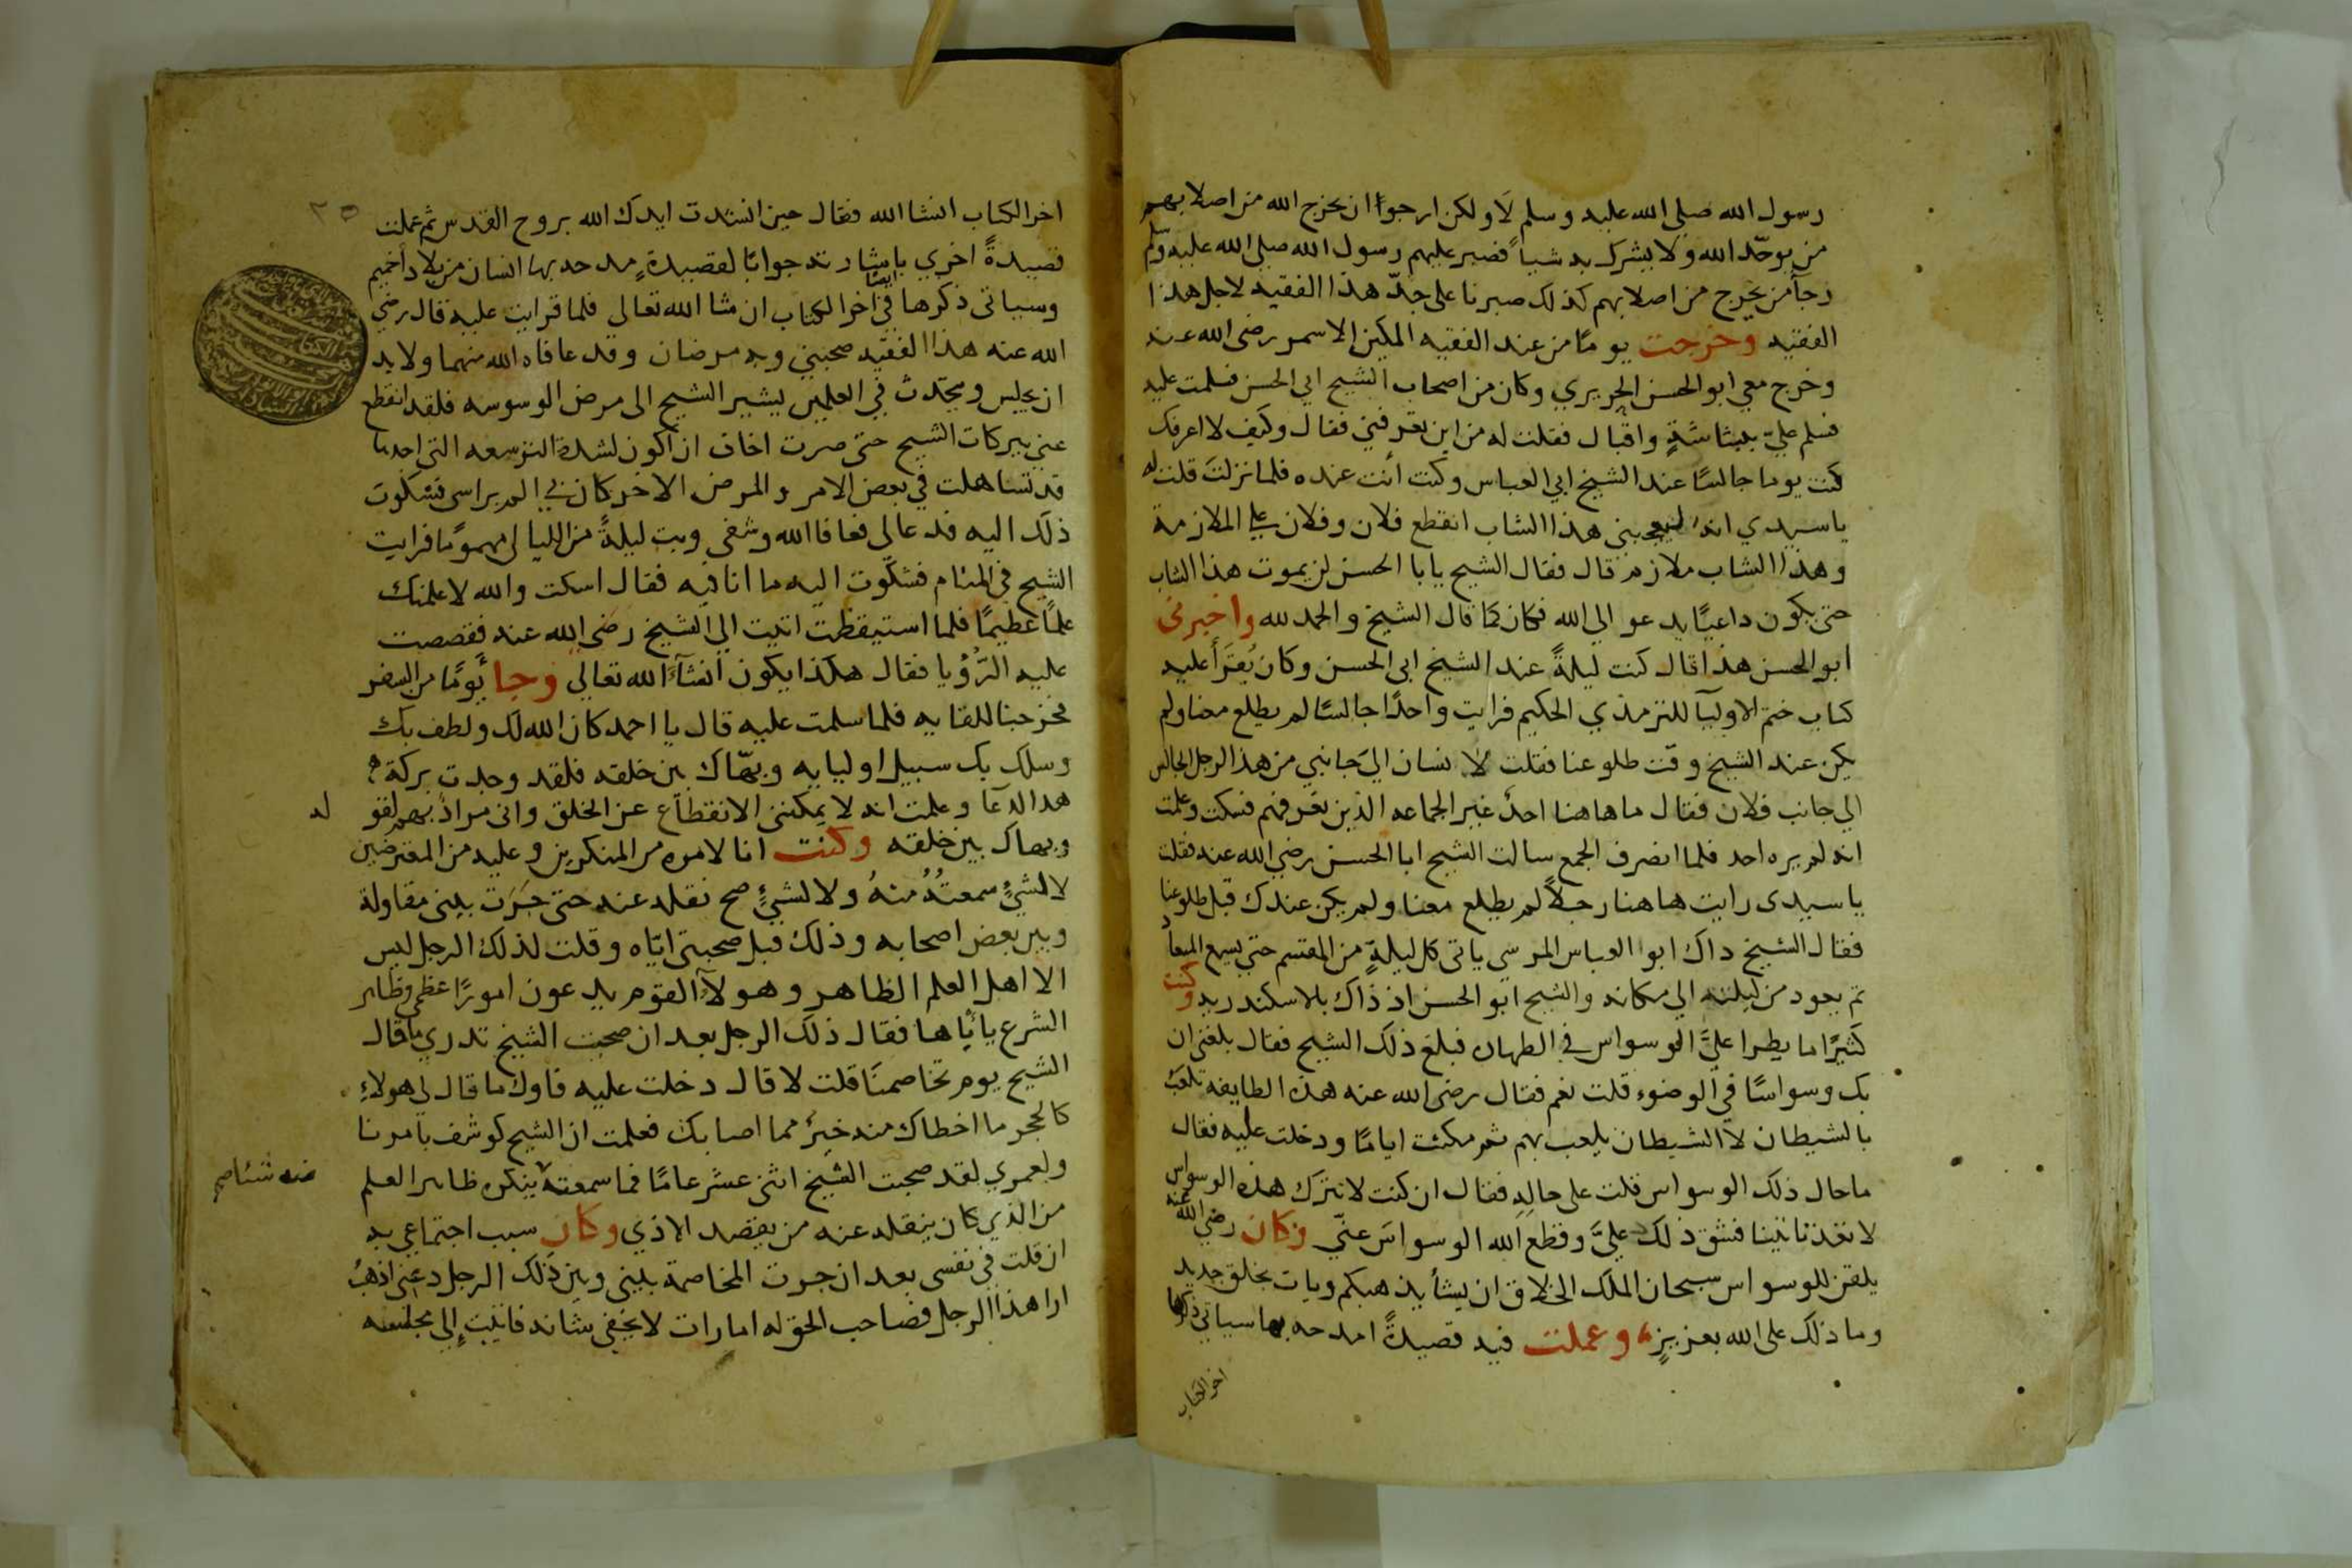 رسول الله صلى الله عليه وسلم لا ولكن ارجوا ان يخرج الله من اصلابهم
من يوحّد الله ولا يشرك به شياً فصبر عليهم رسول الله صلى الله عليه وسلم
رجآ من يخرج من اصلابهم كذلك صبرنا على جدّ هذا الفقيه لاجل هذا
الفقيه وخرجت يومًا من عند الفقيه المكين الاسمر رضى الله عنه
وخرج معي ابو الحسن الجريري وكان من اصحاب الشيخ ابي الحسن فسلمت عليه
فسلم عليّ ببشاشةٍ واقبال فقلت له من اين تعرفني فقال وكيف لا اعرفك
كنت يوما جالسًا عند الشيخ ابي العباس وكنت أنت عنده فلما نزلتَ قلت له
ياسيدي انه ليعجبني هذا الشاب انقطع فلان وفلان على الملازمة
وهذا الشاب ملازم قال فقال الشيخ يابا الحسن لن يموت هذا الشاب
حتى يكون داعيًا يدعو الى الله فكان كما قال الشيخ والحمد لله واخبرنى
ابو الحسن هذا قال كنت ليلةً عند الشيخ ابى الحسن وكان يُقرَأ عليه
كتاب ختم الاوليآ للترمذي الحكيم فرايت واحدًا جالسًا لم يطلع معنا ولم
يكن عند الشيخ وقت طلوعنا فقلت لانسان الى جانبي من هذا الرجل الجالس
الى جانب فلان فقال ما هاهنا احدٌ غير الجماعه الذين تعرفهم فسكت وعلمت
انه لم يره احد فلما انصرف الجمع سالت الشيخ ابا الحسن رضى الله عنه فقلت
ياسيدى رايت هاهنا رجلاً لم يطلع معنا ولم يكن عندك قبل طلوعنا
فقال الشيخ داك ابوا العباس المرسي ياتى كل ليلةٍ من المقسم حتى يسمع الميعاد
ثم يعود من ليلته الى مكانه والشيخ ابو الحسن اذ ذاك بالاسكندريه وكنت
كثيرًا ما يطرا عليَّ الوسواس في الطهاره فبلغ ذلك الشيخ فقال بلغنى ان
بك وسواسًا في الوضوء قلت نعم فقال رضى الله عنه هذه الطايفه تلعب
بالشيطان لا الشيطان يلعب بهم ثم مكثت ايامًا ودخلت عليه فقال
ماحال ذلك الوسواس قلت على حالهِ فقال ان كنت لا تترك هذه الوسواس
لا تعد تاتينا فشق ذلك عليَّ وقطع الله الوسواسَ عنّي وكان رضى الله عنه
يلقن للوسواس سبحان الملك الخلاق ان يشأ يذهبكم ويات بخلق جديد
وما ذلك على الله بعزيزٍ وعملت فيه قصيدةً امدحه بها سياتى ذكرها
اخر الكتاب
٢٥
اخر الكتاب انشا الله فقال حين انشدت ايدك الله بروح القدس ثم عملت
قصيدةً اخري باشارته جوابًا لقصيدةٍ مدحه بها انسان من بلاد أخميم
ايضا
وسياتى ذكرها في اخر الكتاب ان شا الله تعالى فلما قرايت عليه قال رضي
الله عنه هذا الفقيه صحبني وبه مرضان وقد عافاه الله منهما ولابد
ان يجلس ويحدث في العلمين يشير الشيخ الى مرض الوسوسه فلقد انقطع
عني ببركات الشيخ حتى صرت اخاف ان اكون لشدة التوسعه التى اجدها
قد تساهلت في بعض الامر والمرض الاخر كان بي الم براسى فشكوت
ذلك اليه فدعا لى فعافا الله وشفى وبت ليلةً من الليالى مهمومًا فرايت
الشيخ في المنام فشكوت اليه ما انا فيه فقال اسكت والله لاعلمنك
علمًا عظيمًا فلما استيقظت اتيت الى الشيخ رضى الله عنه فقصصت
عليه الرُّؤيا فقال هكذا يكون انشآء الله تعالى وجا يومًا من السفر
فخرجنا للقايه فلما سلمت عليه قال يا احمد كان الله لك ولطف بك
وسلك بك سبيل اوليايه وبهّاك بين خلقه فلقد وجدت بركة
هدا الدعا وعلمت انه لا يمكننى الانقطاع عن الخلق وانى مرادٌ بهم لقو
له
وبهاك بين خلقه وكنت انا لامره من المنكرين وعليه من المعترضين
لا لشيءٍ سمعتُهُ منهُ ولا لشيءٍ صح نقله عنه حتى جَرَت بينى مقاولة
وبين بعض اصحابه وذلك قبل صحبتى ايّاه وقلت لذلك الرجل ليس
الا اهل العلم الظاهر وهولآء القوم يدعون امورًا عظمى وظاهر
الشرع ياباها فقال ذلك الرجل بعد ان صحبت الشيخ تدري ما قال
الشيخ يوم تخاصمنَا قلت لا قال دخلت عليه فاول ما قال لى هولاء
كالحجر ما اخطاك منه خيرٌ مما اصابك فعلمت ان الشيخ كوشف بامرنا
ولعمري لقد صحبت الشيخ اثنى عشر عامًا فما سمعته ينكر ظاهر العلم
منه شئا صح
من الذي كان ينقله عنه من يقصد الاذي وكان سبب اجتماعي به
ان قلت في نفسى بعد ان جرت المخاصمة بينى وبين ذلك الرجل دعنى اذهبُ
ارا هذا الرجل فصاحب الحق له امارات لا يخفى شانه فاتيت إلى مجلسه